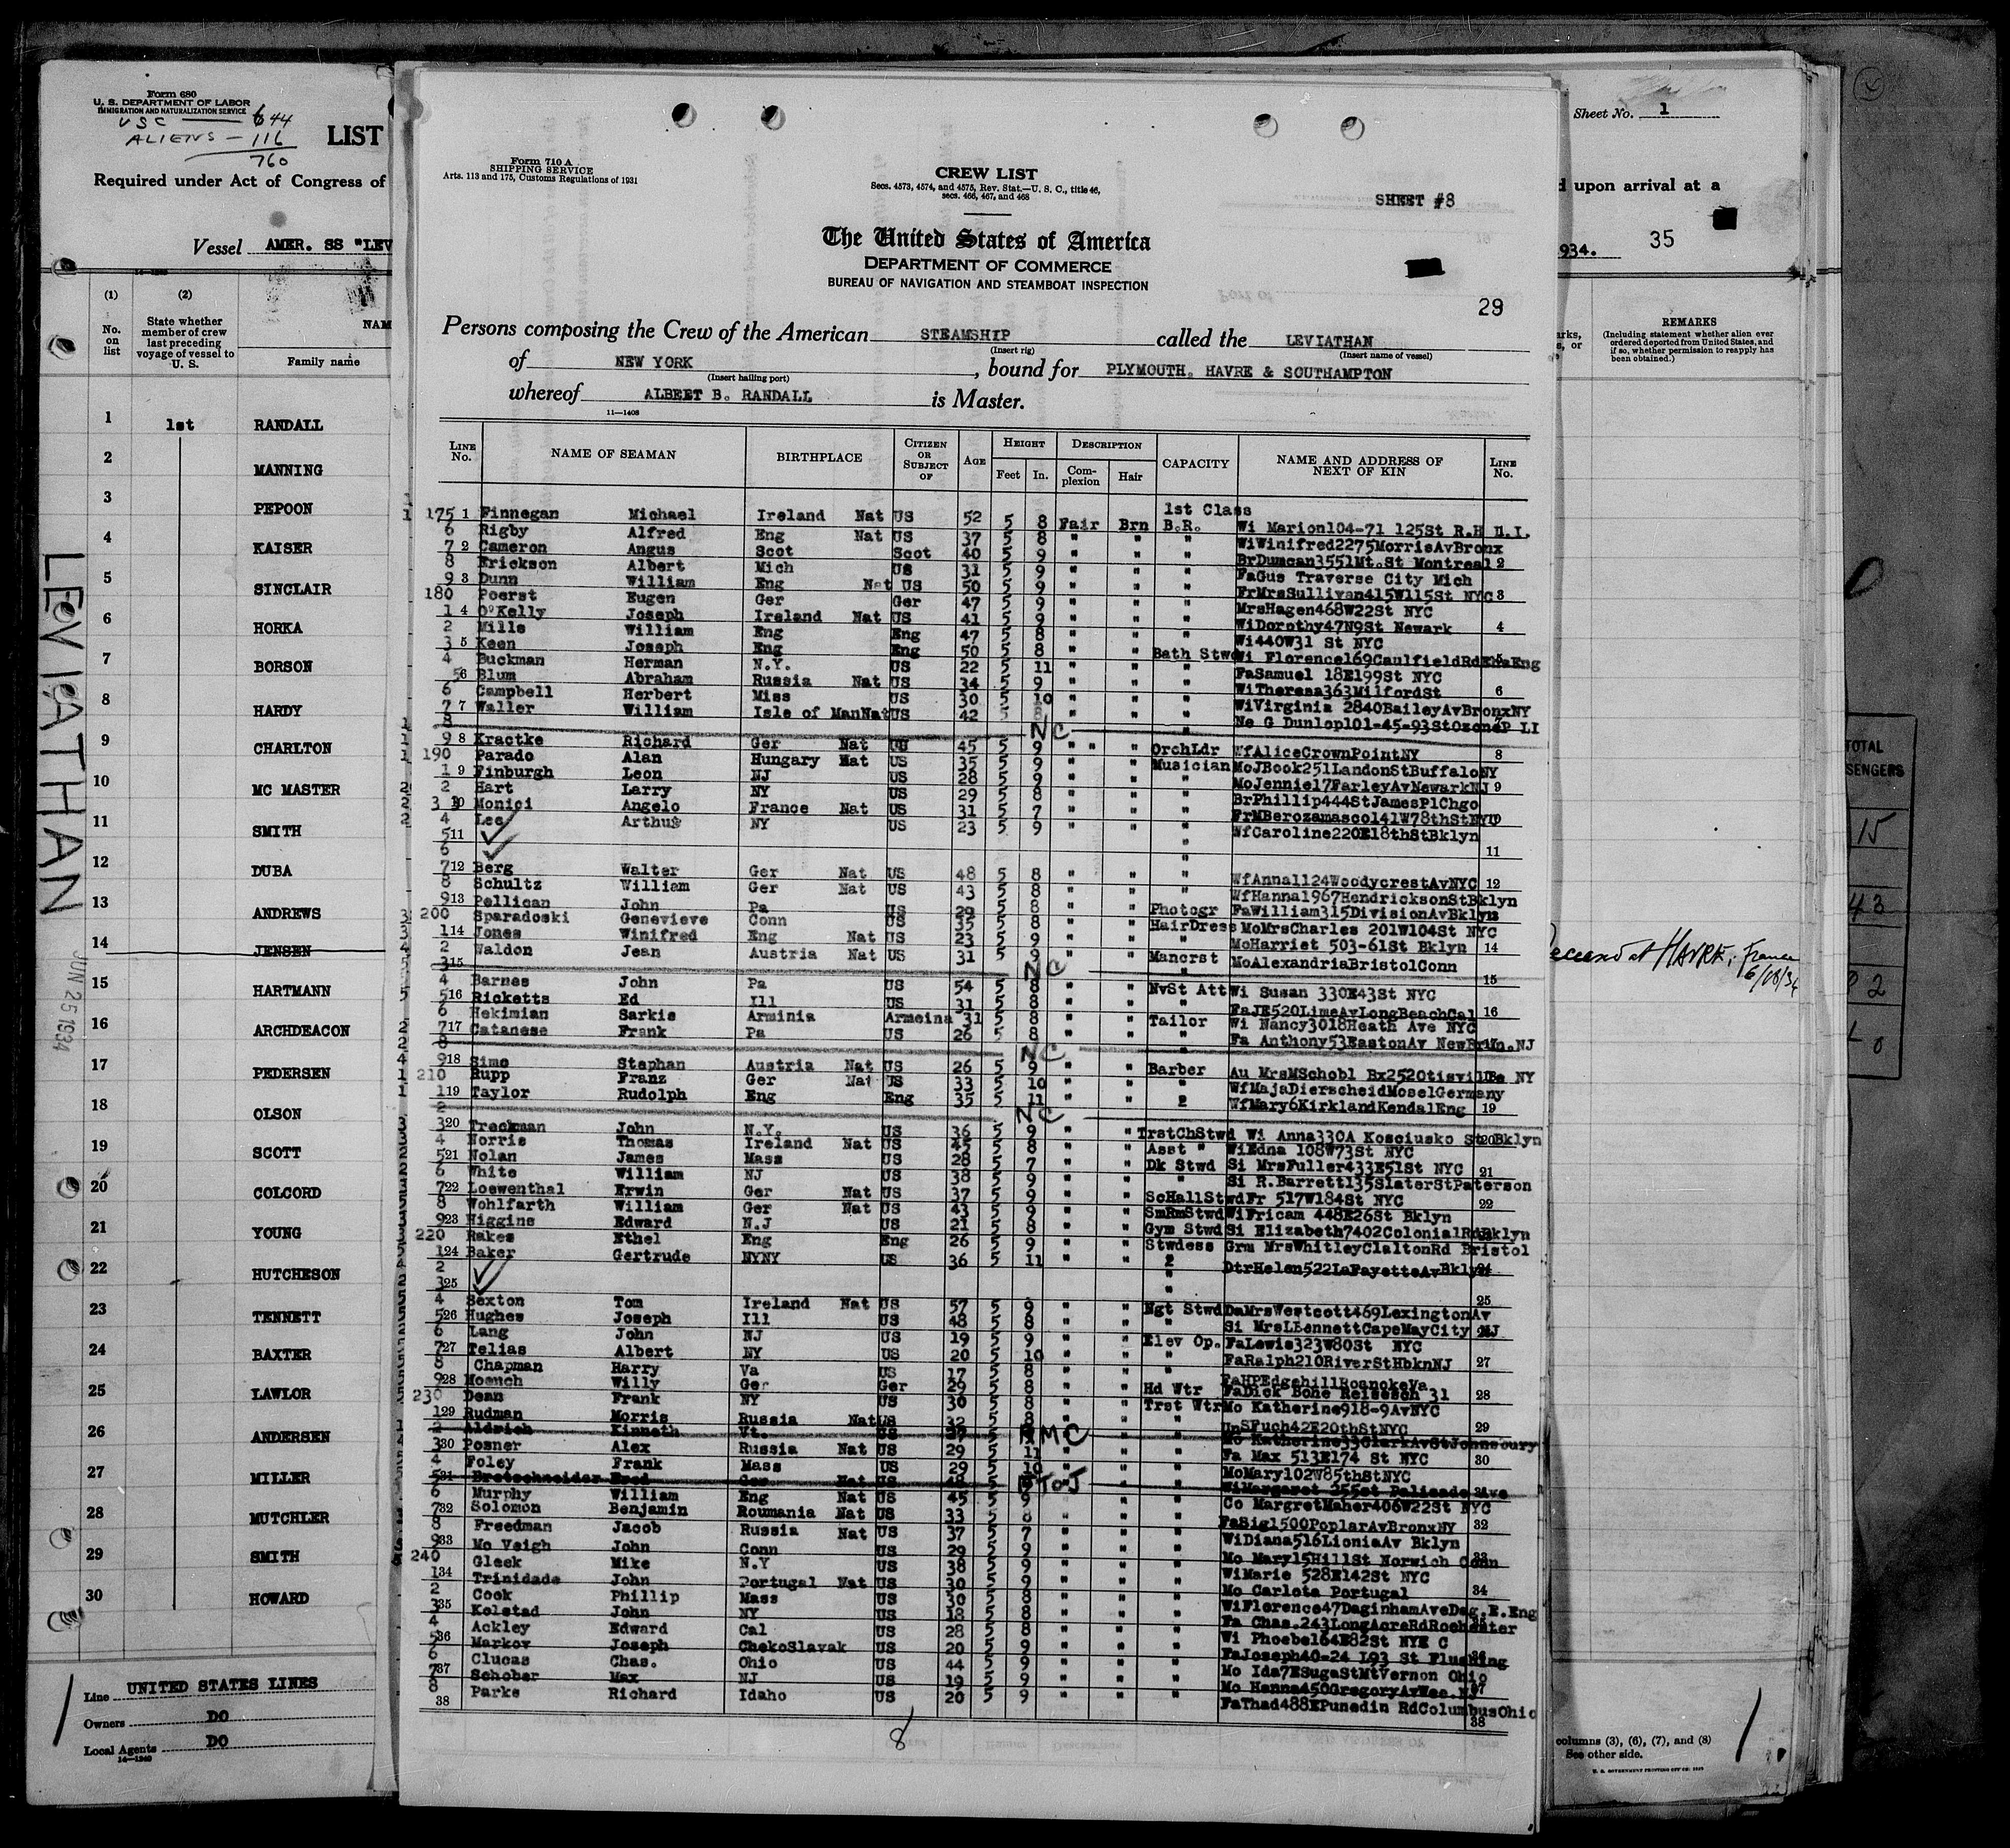 Form 680
U. S. DEPARTMENT OF LABOR
IMMIGRATION AND NATURALIZATION SERVICE
USC — 644
ALIENS — 116
760
LIST
Required under Act of Congress of
Vessel AMER. SS "LEV
(1) (2)
No. on list
State whether member of crew last preceding voyage of vessel to U. S.
NAM
Family name
1 1st RANDALL
2 MANNING
3 PEPOON
4 KAISER
5 SINCLAIR
6 HORKA
7 BORSON
8 HARDY
9 CHARLTON
10 MC MASTER
11 SMITH
12 DUBA
13 ANDREWS
14 JENSEN
15 HARTMANN
16 ARCHDEACON
17 PEDERSEN
18 OLSON
19 SCOTT
20 COLCORD
21 YOUNG
22 HUTCHESON
23 TENNETT
24 BAXTER
25 LAWLOR
26 ANDERSEN
27 MILLER
28 MUTCHLER
29 SMITH
30 HOWARD
Line UNITED STATES LINES
Owners DO
Local Agents DO
14—1240
LEVIATHAN
JUN 25 1934
Form 710 A
SHIPPING SERVICE
Arts. 113 and 175, Customs Regulations of 1931
CREW LIST
Secs. 4573, 4574, and 4575, Rev. Stat.—U. S. C., title 46,
secs. 466, 467, and 468
SHEET #8
The United States of America
DEPARTMENT OF COMMERCE
BUREAU OF NAVIGATION AND STEAMBOAT INSPECTION
29
Persons composing the Crew of the American STEAMSHIP called the LEVIATHAN
(Insert rig) (Insert name of vessel)
of NEW YORK, bound for PLYMOUTH. HAVRE & SOUTHAMPTON
(Insert hailing port)
whereof ALBERT B. RANDALL is Master.
11—1408
LINE No. NAME OF SEAMAN BIRTHPLACE CITIZEN OR SUBJECT OF AGE HEIGHT Feet In. DESCRIPTION Complexion Hair CAPACITY NAME AND ADDRESS OF NEXT OF KIN LINE No.
1st Class
175 1 Finnegan Michael Ireland Nat US 52 5 8 Fair Brn B.R. Wi Marion104-71 125St R.H L.I.
6 Rigby Alfred Eng Nat US 37 5 8 " " " WiWinifred2275MorrisAvBronx
7 2 Cameron Angus Scot Scot 40 5 9 " " " BrDuncan3551Mt.St Montreal 2
8 Erickson Albert Mich US 31 5 9 " " " FaGus Traverse City Mich
9 3 Dunn William Eng Nat US 50 5 9 " " " FrMrsSullivan415W115St NYC 3
180 Poerst Eugen Ger Ger 47 5 9 " " " MrsHagen468W22St NYC
1 4 O'Kelly Joseph Ireland Nat US 41 5 9 " " " WiDorothy47N9St Newark 4
2 Mills William Eng Eng 47 5 8 " " " Wi440W31 St NYC
3 5 Keen Joseph Eng Eng 50 5 8 " " Bath Stwd Wi Florence169CaulfieldRd Eng
4 Buckman Herman N.Y. US 22 5 11 " " " FaSamuel 18E199St NYC
5 6 Blum Abraham Russia Nat US 34 5 9 " " " WiTheresa363MilfordSt 6
6 Campbell Herbert Miss US 30 5 10 " " " WiVirginia 2840BaileyAvBronxNY
7 7 Waller William Isle of ManNat US 42 5 8 " " " Ne G Dunlop101-45-93StOzoneP LI
8 NC
9 8 Kractke Richard Ger Nat US 45 5 9 " " " OrchLdr WfAliceCrownPointNY 8
190 Parado Alan Hungary Nat US 35 5 9 " " Musician MoJBook251LandonStBuffaloNY
1 9 Finburgh Leon NJ US 28 5 9 " " " MoJennie17FarleyAvNewarkNJ 9
2 Hart Larry NY US 29 5 8 " " " BrPhillip444StJamesPlChgo
3 10 Monici Angelo France Nat US 31 5 7 " " " FrMBerozamasco141W78thStNY 10
4 Lee Arthur NY US 23 5 9 " " " WfCaroline220E18thStBklyn
5 11 ✓ "
6 ✓ " 11
7 12 Berg Walter Ger Nat US 48 5 8 " " " WfAnna1124WoodycrestAvNYC 12
8 Schultz William Ger Nat US 43 5 8 " " " WfHanna1967HendricksonStBklyn
9 13 Pellican John Pa US 29 5 8 " " Photogr FaWilliam315DivisionAvBklyn
200 Sparadoski Genevieve Conn US 35 5 8 " " HairDress MoMrsCharles 201W104St NYC
1 14 Jones Winifred Eng Nat US 23 5 9 " " " MoHarriet 503-61St Bklyn 14
2 Waldon Jean Austria Nat US 31 5 9 " " Mancrst MoAlexandriaBristolConn
3 15 NC " 15
4 Barnes John Pa US 54 5 8 " " NvSt Att Wi Susan 330E43St NYC
5 16 Ricketts Ed Ill US 31 5 8 " " " FaJE520LimeAvLongBeachCal 16
6 Hekimian Sarkis Arminia Armeina 31 5 8 " " Tailor Wi Nancy3018Heath Ave NYC
7 17 Catanese Frank Pa US 26 5 8 " " " Fa Anthony53EastonAv NewBrun.NJ
8 NC "
9 18 Simo Stephan Austria Nat US 26 5 9 " " Barber Au MrsMSchobl Bx252Otisville NY
210 Rupp Franz Ger Nat US 33 5 10 " " " WfMajaDierscheidMoselGermany
1 19 Taylor Rudolph Eng Eng 35 5 11 " " 2 WfMary6KirklandKendalEng 19
2 NC
3 20 Treckman John N.Y. US 36 5 9 " " TrstChStwd Wi Anna330A Kosciusko St Bklyn
4 Norris Thomas Ireland Nat US 45 5 8 " " Asst " WiEdna 108W73St NYC
5 21 Nolan James Mass US 28 5 7 " " Dk Stwd Si MrsFuller433E51St NYC 21
6 White William NJ US 38 5 9 " " " Si R.Barrett135SlaterStPaterson
7 22 Loewenthal Erwin Ger Nat US 37 5 9 " " ScHallStwd Fr 517W184St NYC 22
8 Wohlfarth William Ger Nat US 43 5 9 " " SmRmStwd WiFricam 448E26St Bklyn
9 23 Higgins Edward N.J US 21 5 8 " " Gym Stwd Si Elizabeth7402ColonialRdBklyn
220 Rakes Ethel Eng Eng 26 5 9 " " Stwdess Grm MrsWhitleyClaltonRd Bristol
1 24 Baker Gertrude NYNY US 36 5 11 " " 2 DtrHelen522LaFayetteAvBklyn
2 ✓ "
3 25 " 25
4 Sexton Tom Ireland Nat US 57 5 9 " " Ngt Stwd DaMrsWestcott469LexingtonAv
5 26 Hughes Joseph Ill US 48 5 8 " " " Si MrsLBennettCapeMayCity NJ
6 Lang John NJ US 19 5 9 " " Elev Op. FaLewis323W80St NYC
7 27 Telias Albert NY US 20 5 10 " " " FaRalph210RiverStHbknNJ 27
8 Chapman Harry Va US 17 5 8 " " " FaHPEdgehillRoanokeVa
9 28 Moench Willy Ger Ger 29 5 8 " " Hd Wtr FaDick Bone 31 28
230 Dean Frank NY US 30 5 8 " " Trst Wtr Mo Katherine918-9AvNYC
1 29 Rudman Morris Russia Nat US 32 5 8 " " " UnSFuch42E20thStNYC 29
2 Aldrich Kinneth Vt. US 27 5 RMC " " Mo Katherine33ClarkAvStJohnsbury
3 30 Posner Alex Russia Nat US 29 5 11 " " " Fa Max 513E174 St NYC 30
4 Foley Frank Mass US 29 5 10 " " " MoMary102W85thStNYC
5 31 Bretschneider Fred Ger Nat US 48 5 DToJ " " WiMargaret 255st Palisade Ave
6 Murphy William Eng Nat US 45 5 9 " " " Co MargretMaher406W22St NYC
7 32 Solomon Benjamin Roumania Nat US 33 5 8 " " " FaSig1500PoplarAvBronxNY 32
8 Freedman Jacob Russia Nat US 37 5 7 " " " WiDiana516LioniaAv Bklyn
9 33 Mc Veigh John Conn US 29 5 9 " " " Mo Mary15HillSt Norwich Conn
240 Gleek Mike N.Y US 38 5 9 " " " WiMarie 528E142St NYC
1 34 Trinidade John Portugal Nat US 30 5 9 " " " Mo Carlota Portugal 34
2 Cook Phillip Mass US 30 5 8 " " " WiFlorence47DaginhamAveDag.E.Eng
3 35 Kolstad John NY US 18 5 8 " " " Fa Chas.243LongAcreRdRochester
4 Ackley Edward Cal US 28 5 8 " " " Wi Phoebe164E82St NYE C
5 36 Markov Joseph ChekoSlavak US 20 5 9 " " " FaJoseph40-24 193 St Flushing
6 Clucas Chas. Ohio US 44 5 9 " " " Mo Ida7ESugaStMtVernon Ohio
7 37 Schober Max NJ US 19 5 9 " " " Mo Hanna450GregoryAvWee.NJ
8 Parks Richard Idaho US 20 5 9 " " " FaThad488EPunedin RdColumbusOhio
38 38
8
Sheet No. 1
d upon arrival at a
35
934.
REMARKS
(Including statement whether alien ever ordered deported from United States, and if so, whether permission to reapply has been obtained.)
at HAVRE, France
6/18/34
TOTAL
SENGERS
15
43
32
columns (3), (6), (7), and (8)
See other side.
U. S. GOVERNMENT PRINTING OFFICE